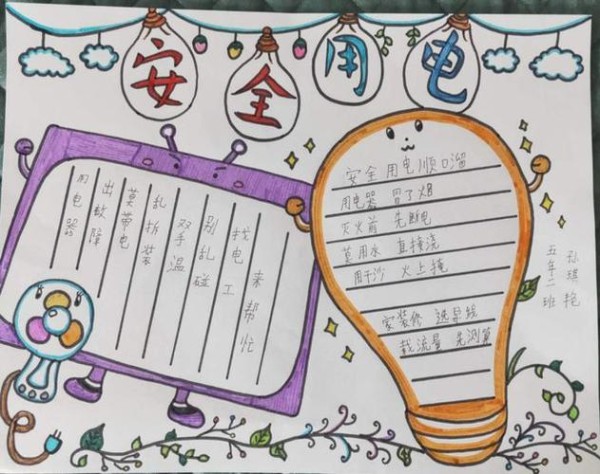 安全用电
用电器
出故障
莫带电
乱拆装
双手温
别乱碰
找电工
来帮忙
安全用电顺口溜
用电器 冒了烟
灭火前 先断电
莫用水 直接浇
用干沙 火上掩
安装修 选导线
载流量 先测算
五年二班
孙琪艳